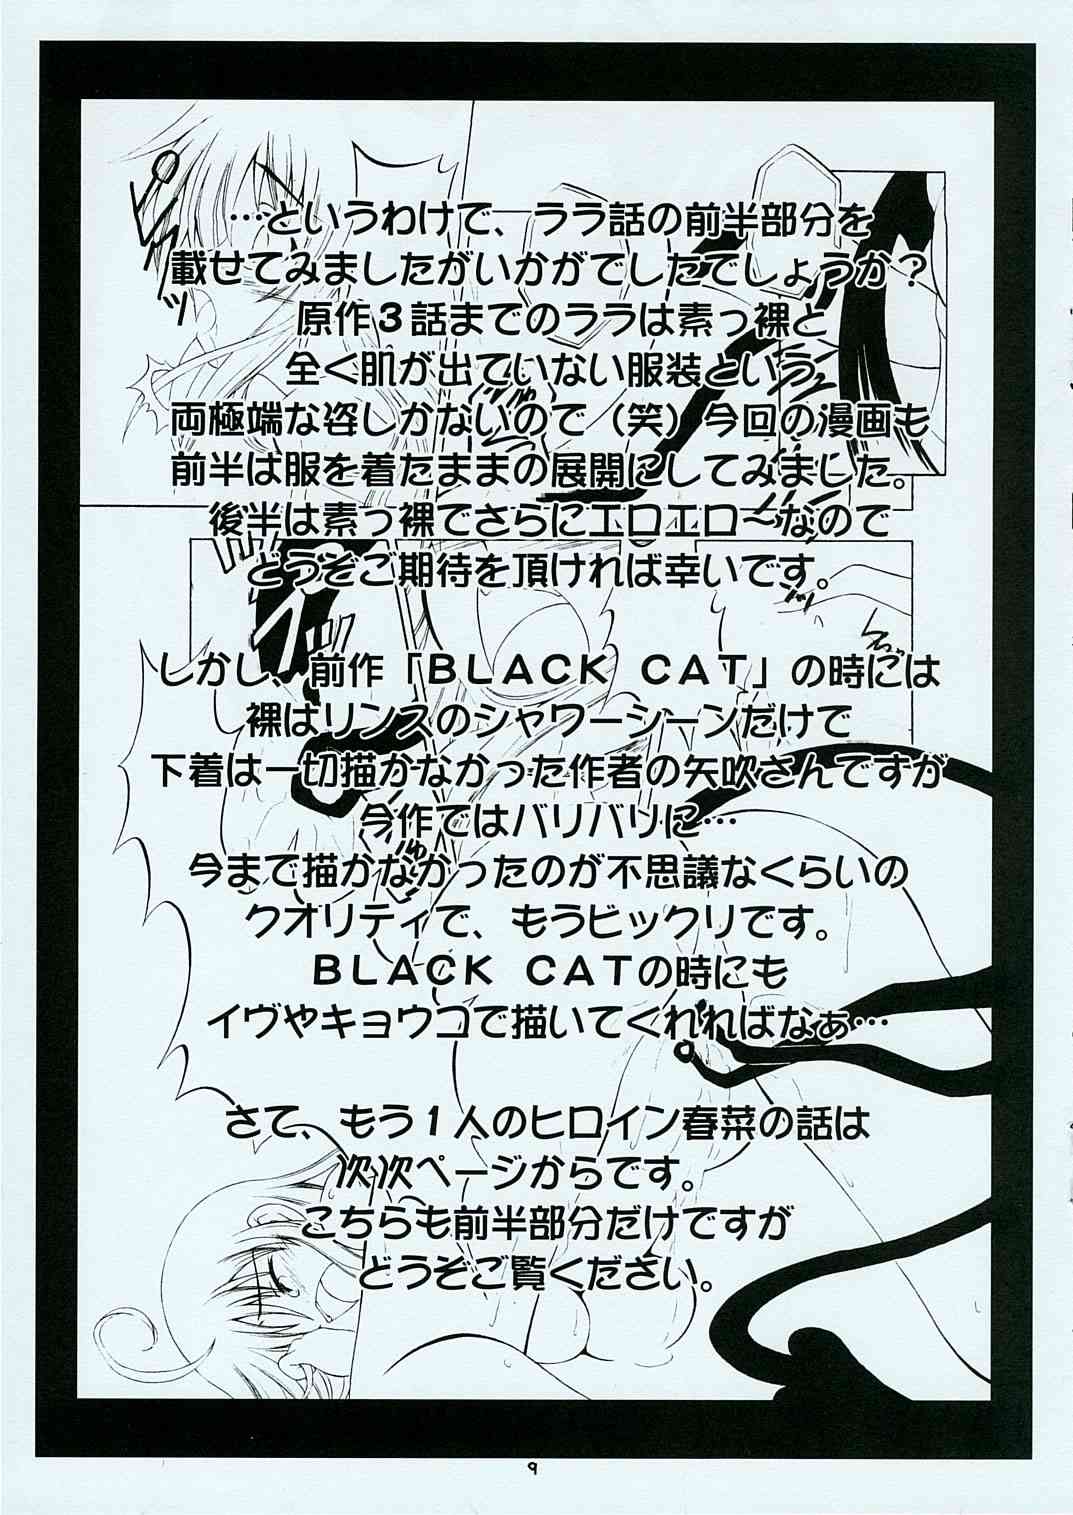 …というわけで、ララ話の前半部分を
載せてみましたがいかがでしたでしょうか？
原作３話までのララは素っ裸と
全く肌が出ていない服装という
両極端な姿しかないので（笑）今回の漫画も
前半は服を着たままの展開にしてみました。
後半は素っ裸でさらにエロエロ～なので
どうぞご期待を頂ければ幸いです。
しかし、前作「ＢＬＡＣＫ ＣＡＴ」の時には
裸はリンスのシャワーシーンだけで
下着は一切描かなかった作者の矢吹さんですが
今作ではバリバリに…
今まで描かなかったのが不思議なくらいの
クオリティで、もうビックリです。
ＢＬＡＣＫ ＣＡＴの時にも
イヴやキョウコで描いてくれればなぁ…
さて、もう１人のヒロイン春菜の話は
次次ページからです。
こちらも前半部分だけですが
どうぞご覧ください。
9